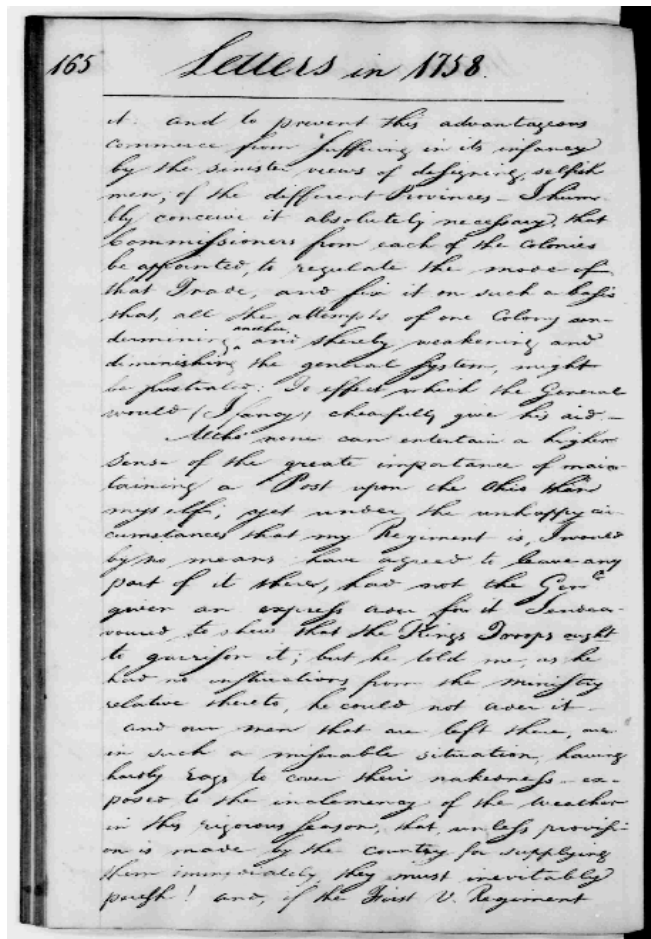 165 Letters in 1758.
it. and to prevent this advantageous
commerce from suffering in its infancy
by the sinister views of designing, selfish
men, of the different Provinces - I hum-
bly conceive it absolutely necessary, that
Commissioners from each of the Colonies
be appointed, to regulate the mode of
that Trade, and fix it on such a basis
that, all the attempts of one Colony un-
another,
dermining and thereby weakening and
diminishing the general System, might
be frustrated: To effect which the General
would (I fancy) chearfully give his aid. -
Altho' none can entertain a higher
sense of the great importance of main-
taining a Post upon the Ohio than
myself; yet under the unhappy cir-
cumstances that my Regiment is, I would
by no means have agreed to leave any
part of it there, had not the Genl.
given an express order for it I endea-
voured to shew that the Kings Troops ought
to garrison it; but he told me, as he
had no instructions from the ministry
relative thereto, he could not order it -
and our men that are left there, are
in such a miserable situation, having
hardly rags to cover their nakedness - ex-
posed to the inclemency of the weather
in this rigorous season, that, unless provisi-
on is made by the country for supplying
them immediately, they must inevitably
perish! and, if the First V. Regiment